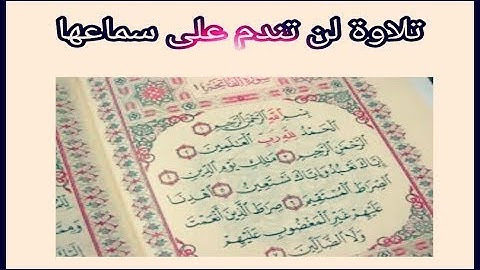 تلاوة لن تندم على سماعها
سُورَةُ الفَاتِحَةِ
بِسْمِ اللَّهِ الرَّحْمَٰنِ الرَّحِيمِ ١
الْحَمْدُ لِلَّهِ رَبِّ الْعَٰلَمِينَ ٢
الرَّحْمَٰنِ الرَّحِيمِ ٣ مَٰلِكِ يَوْمِ الدِّينِ ٤
إِيَّاكَ نَعْبُدُ وَإِيَّاكَ نَسْتَعِينُ ٥ اهْدِنَا
الصِّرَٰطَ الْمُسْتَقِيمَ ٦ صِرَٰطَ الَّذِينَ أَنْعَمْتَ
عَلَيْهِمْ غَيْرِ الْمَغْضُوبِ عَلَيْهِمْ
وَلَا الضَّالِّينَ ٧